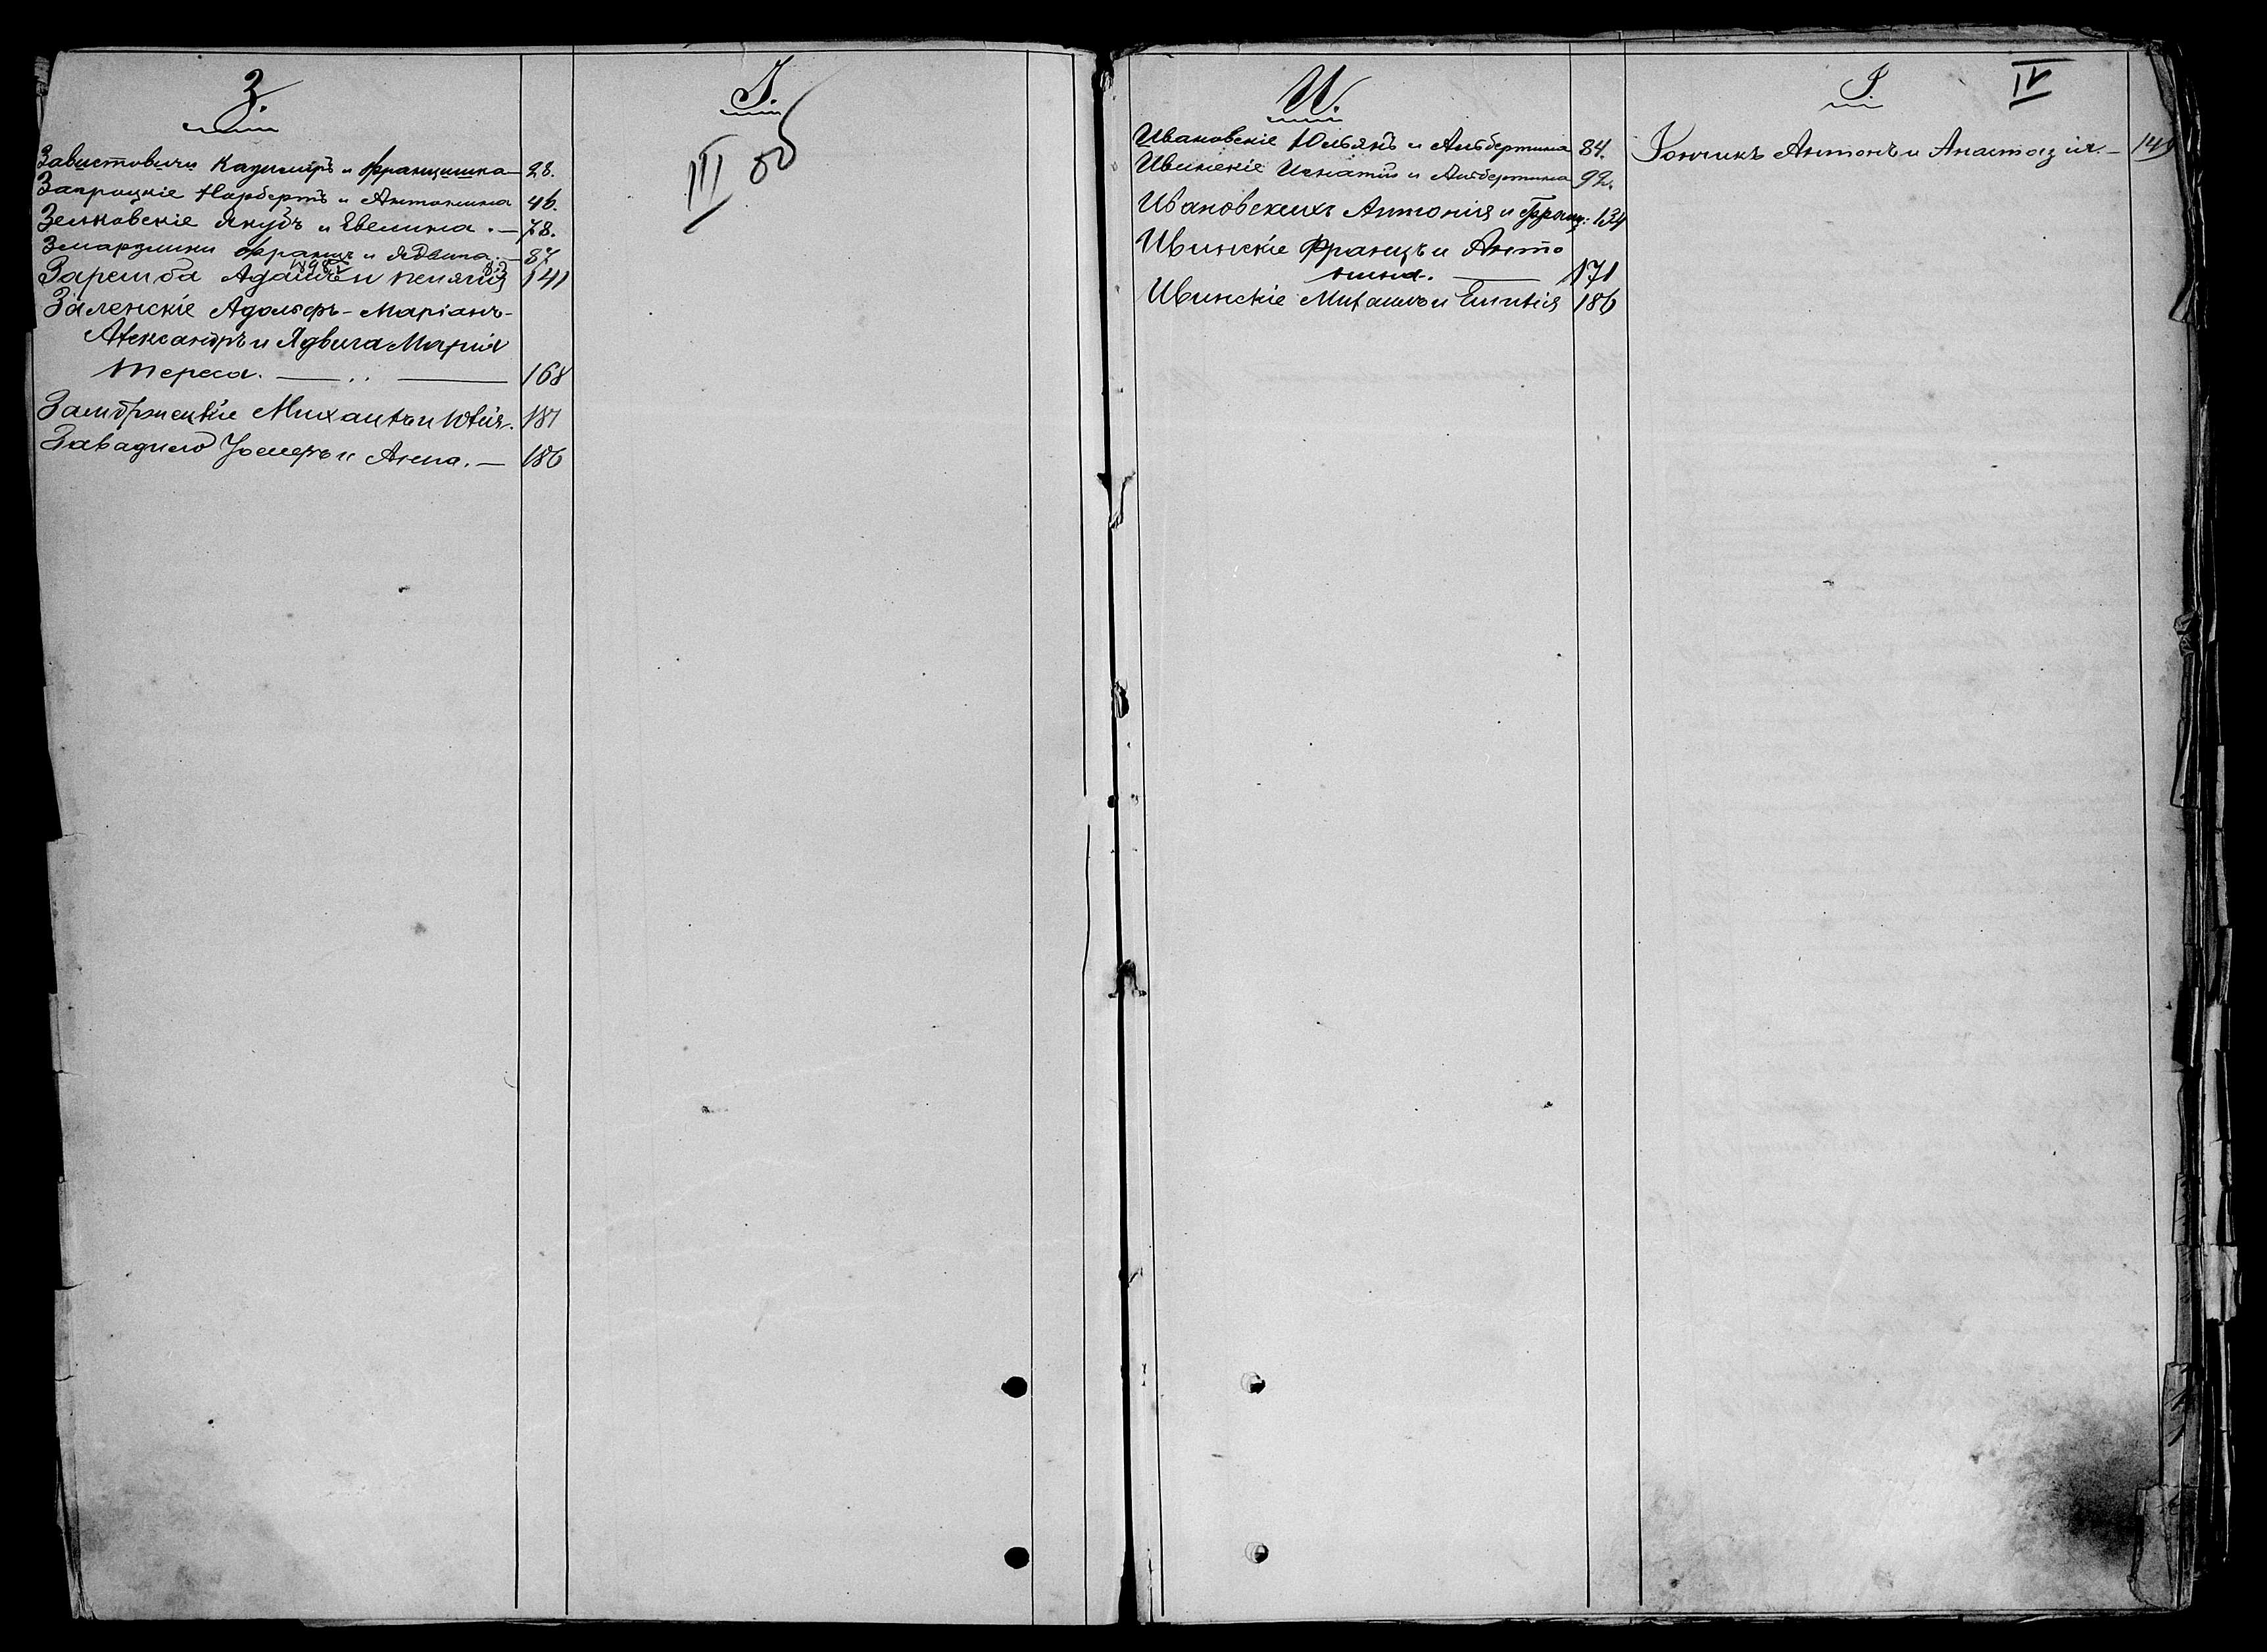 З.
Завистовичи Казимиръ и Францишка — 28.
Запроцкіе Норбертъ и Антонина 46.
Зенковскіе Якубъ и Эвелина. — 78.
Змардлики Францъ и Ядвига. — 87
Заремба Адамъ и 141
Заленскіе Адольфъ-Маріанъ-
Александръ и Ядвига Марія
Тереса. — .. — 168
Замбржецкіе Михаилъ и Юлія. 187
Завадило Іосифъ и Анна. — 186
І.
III
И.
Ивановскіе Юльянъ и Альбертина 84.
Ивинскіе Игнатій и Альбертина 92.
Ивановскихъ Антонія и Франц: 134
Ивинскіе Францъ и Анто
нина. — 171
Ивинскіе Михаилъ и Емилія 186
І.
IV
Іончикъ Антонъ и Анастазія. — 149